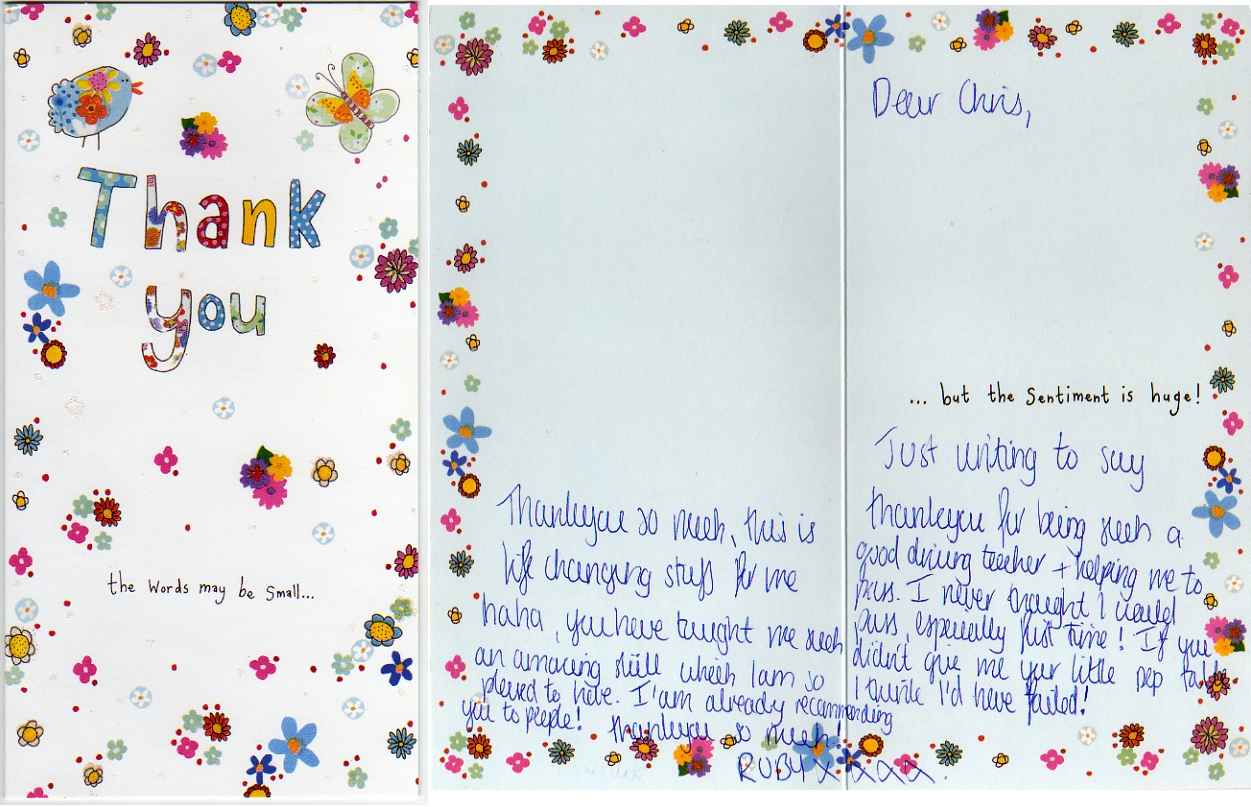 Thank
you
the words may be small...
Dear Chris,
... but the sentiment is huge!
Just writing to say
thankyou for being such a
good driving teacher + helping me to
pass. I never thought I would
pass, especially first time! If you
didn't give me your little pep talk
I think I'd have failed!
Thankyou so much, this is
life changing stuff for me
haha, you have taught me such
an amazing skill which I am so
pleased to have. I'am already recommending
you to people! Thankyou so much!
RUBY x x x x x